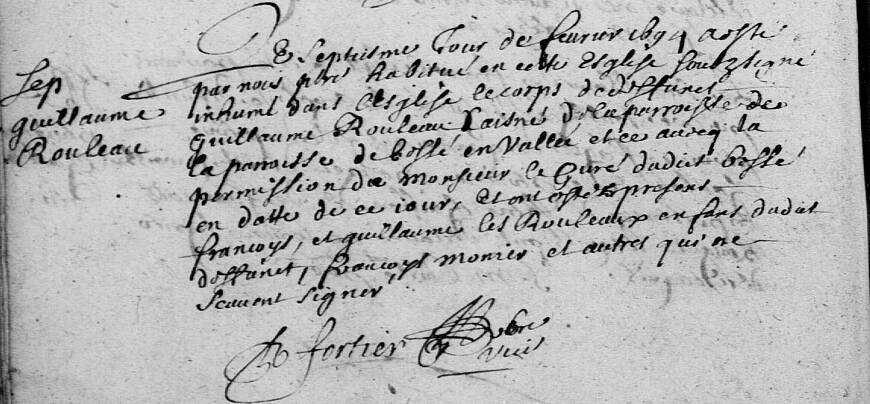 Sep
guillaume
Rouleau
Le Septiesme Jour de feurier 1694 a esté
par nous prê habitué en cette Esglise soubzsigné
inhumé dans l'Esglise le corps de deffunct
guillaume Rouleau Laisné de la parroisse de
la parroisse de bossé en Vallée et ce avecq la
permission de Monsieur le Curé dudict bossé
en datte de ce iour, Et ont estés presens
francoys, et guillaume les Rouleaux enfans dudict
deffunct, francoys monier et autres qui ne
scauent signer
fortier